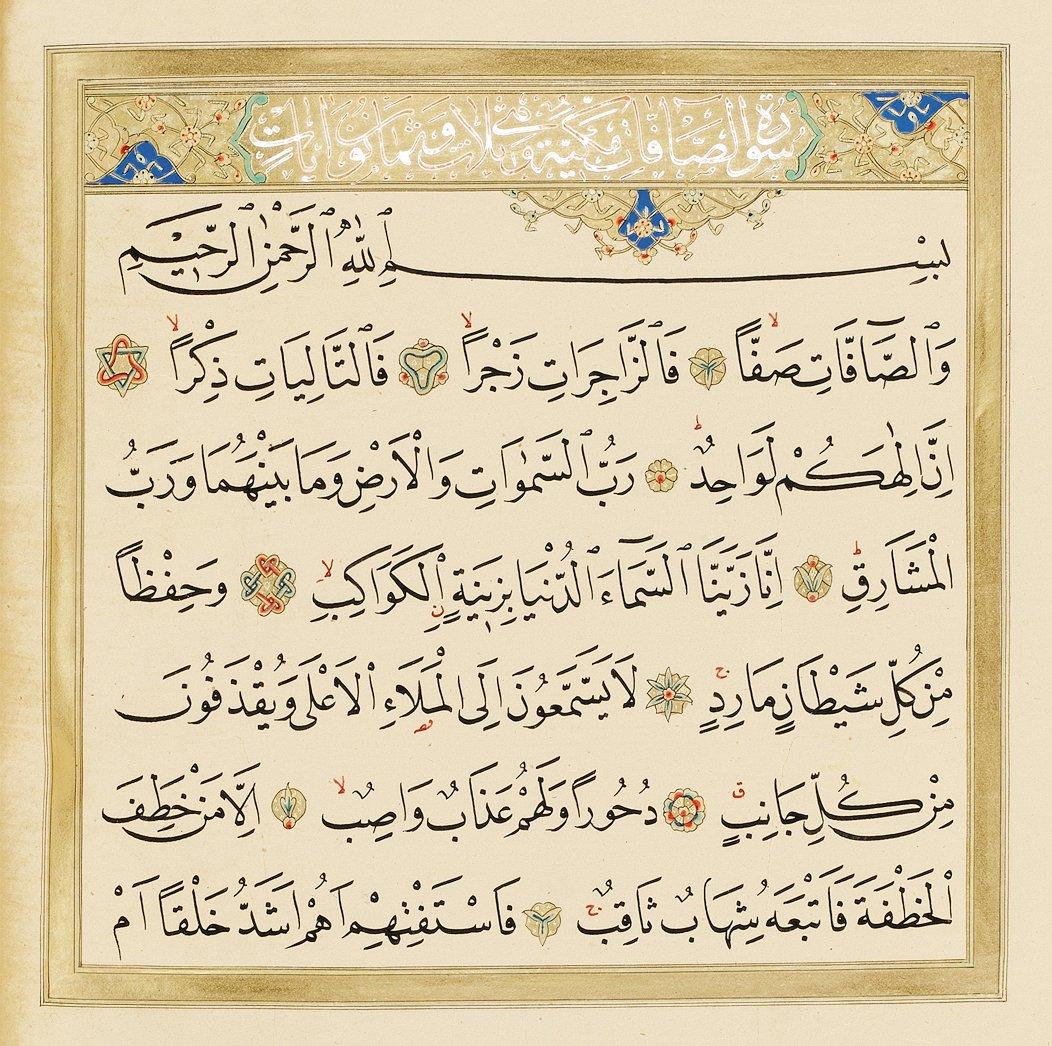 سُورَةُ الصَّافَّاتِ مَكِّيَّةٌ وَهِيَ ثَلَاثٌ وَثَمَانُونَ آيَاتٍ
بِسْمِ اللّٰهِ الرَّحْمٰنِ الرَّحِيمِ
وَالصَّٓافَّاتِ صَفًّا ۙ فَالزَّاجِرَاتِ زَجْرًا ۙ فَالتَّالِيَاتِ ذِكْرًا ۙ
اِنَّ اِلٰهَكُمْ لَوَاحِدٌ ۜ رَبُّ السَّمٰوَاتِ وَالْاَرْضِ وَمَا بَيْنَهُمَا وَرَبُّ
الْمَشَارِقِ ۜ اِنَّا زَيَّنَّا السَّمَٓاءَ الدُّنْيَا بِزِينَةٍۨ الْكَوَاكِبِ ۙ وَحِفْظًا
مِنْ كُلِّ شَيْطَانٍ مَارِدٍ ۚ لَا يَسَّمَّعُونَ اِلَى الْمَلَاءِ الْاَعْلٰى وَيُقْذَفُونَ
مِنْ كُلِّ جَانِبٍ ۗ دُحُورًا وَلَهُمْ عَذَابٌ وَاصِبٌ ۙ اِلَّا مَنْ خَطِفَ
الْخَطْفَةَ فَاَتْبَعَهُ شِهَابٌ ثَاقِبٌ ۚ فَاسْتَفْتِهِمْ اَهُمْ اَشَدُّ خَلْقًا اَمْ